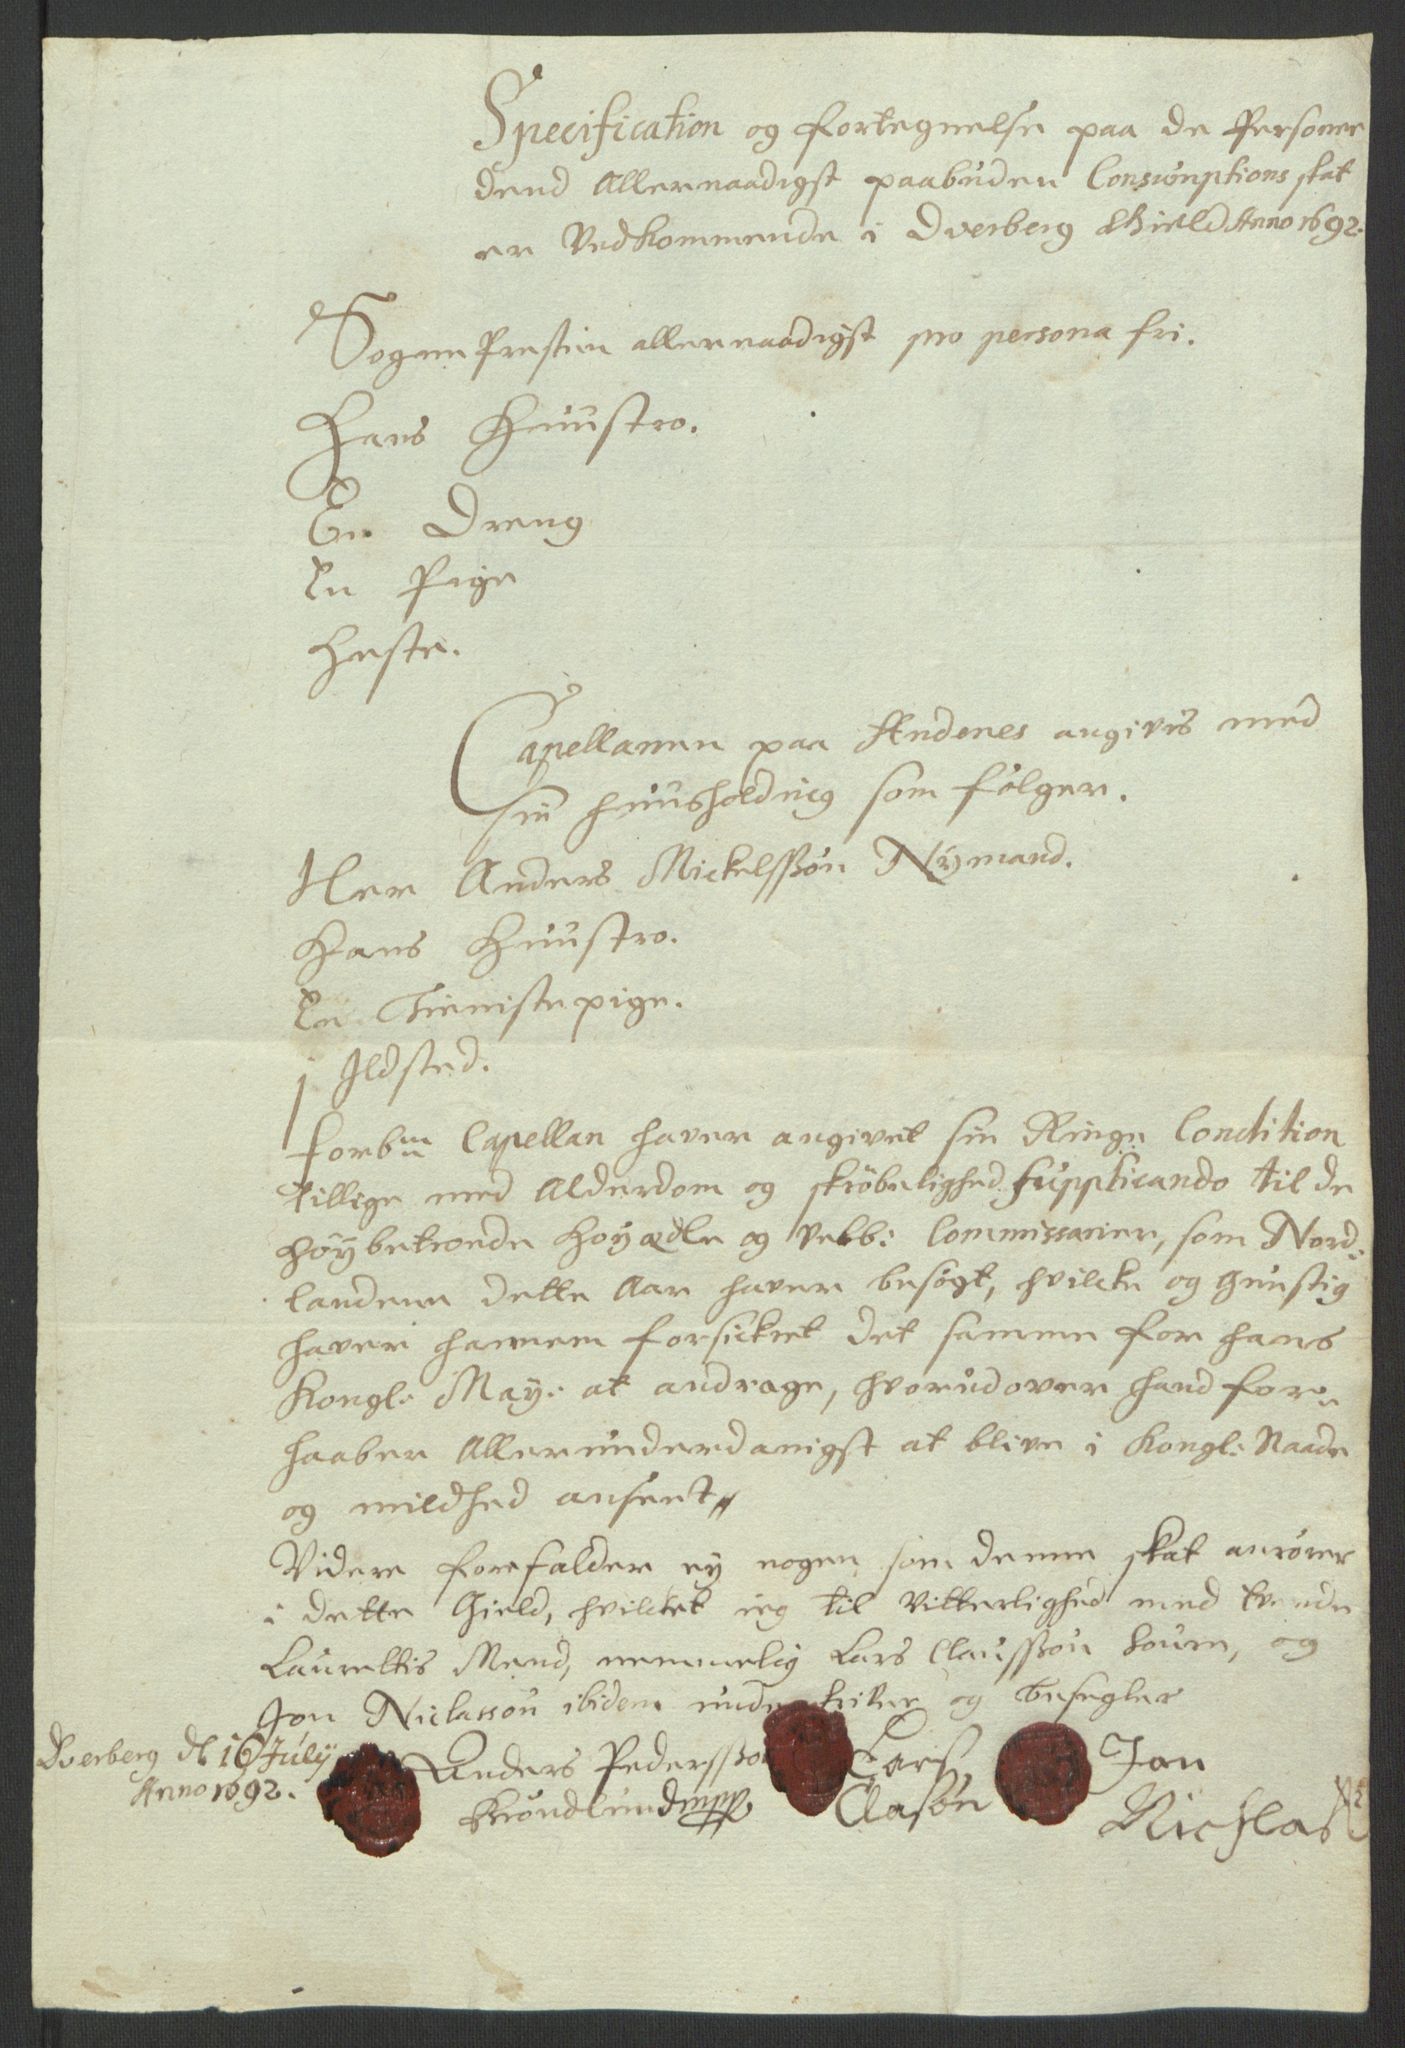 Specification og fortegnelse paa de Personer
dend Allernaadigst paabuden Consumptions skat
er Vedkommende i Dverberg Gield Anno 1692.
Sogne Presten allernaadigst pro persona fri.
Hans Huustro.
En Dreng
En Pige
Heste.
Capellanen paa Andenes angives med
sin huusholding som følger.
Her Anders Mickelssøn Nymand.
Hans Huustro.
En Tienistepige.
j Ildsted.
forbm Capellan haver angivet sin Ringe Condition
tillige med Alderdom og skröbelighed supplicando til de
höybetroede Höyædle og velb: Commissarier, som Nord:
landene dette Aar haver besögt, hvilcke og gunstig
haver hannem forsickret det samme for hans
Kongl: May: at andrage, hvorudover hand for:
haaber Allerunderdanigst at blive i Kongl: Naade
og mildhed anseet
Videre forefalder ey nogen som denne skat anrörer
i dette Gield, hvilcket ieg til Vitterlighed med tvende
Laurettis Mend, nemmelig Lars Claussøn Toum, og
Jon Niclassøn ibidem underskriver og besegler
Dverberg dl 16 July
Anno 1692.
Anders Pederssøn
Kröndlund mpp
Lars
Clasön
Jon
Nichlas